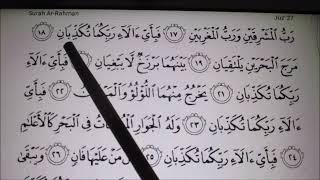 Surah Ar-Rahman Juz' 27
رَبُّ ٱلْمَشْرِقَيْنِ وَرَبُّ ٱلْمَغْرِبَيْنِ ١٧ فَبِأَيِّ ءَالَآءِ رَبِّكُمَا تُكَذِّبَانِ ١٨
مَرَجَ ٱلْبَحْرَيْنِ يَلْتَقِيَانِ ١٩ بَيْنَهُمَا بَرْزَخٌ لَّا يَبْغِيَانِ ٢٠ فَبِأَيِّ ءَالَآءِ
رَبِّكُمَا تُكَذِّبَانِ ٢١ يَخْرُجُ مِنْهُمَا ٱللُّؤْلُؤُ وَٱلْمَرْجَانُ ٢٢ فَبِأَيِّ
ءَالَآءِ رَبِّكُمَا تُكَذِّبَانِ ٢٣ وَلَهُ ٱلْجَوَارِ ٱلْمُنشَـَٔاتُ فِى ٱلْبَحْرِ كَٱلْأَعْلَـٰمِ
٢٤ فَبِأَيِّ ءَالَآءِ رَبِّكُمَا تُكَذِّبَانِ ٢٥ كُلُّ مَنْ عَلَيْهَا فَانٍ ٢٦ وَيَبْقَىٰ